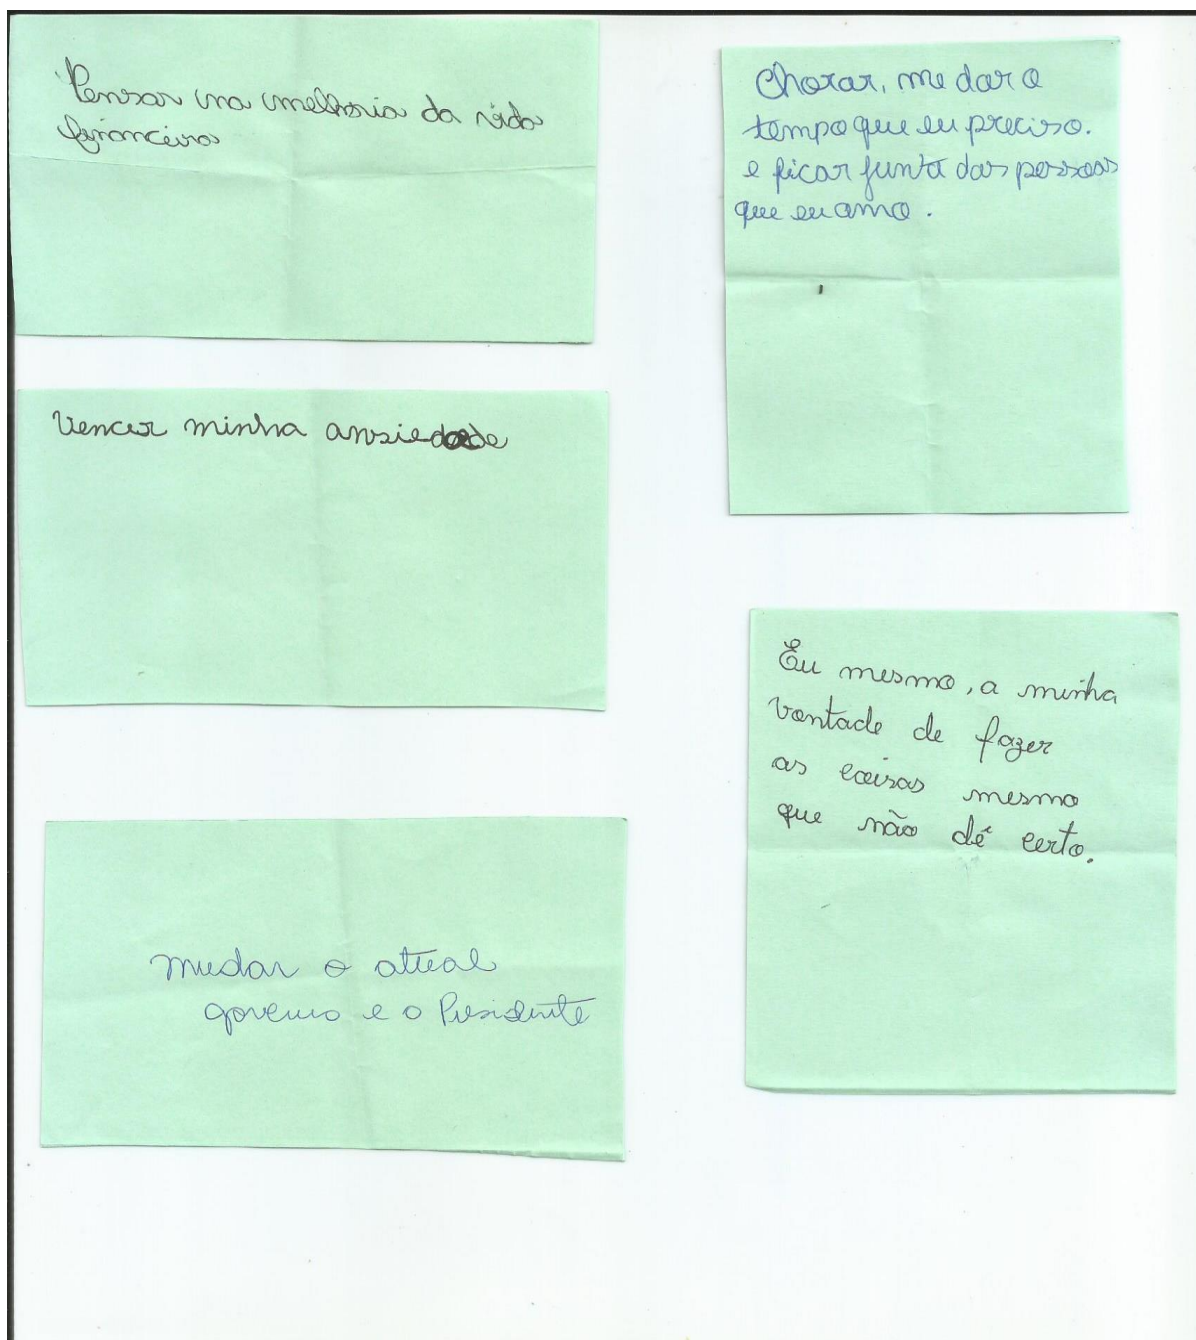 Pensar na melhoria da vida
financeira
Vencer minha ansiedade
mudar o atual
governo e o Presidente
Chorar, me dar o
tempo que eu preciso.
e ficar junta das pessoas
que eu amo.
Eu mesmo, a minha
vontade de fazer
as coisas mesmo
que não dê certo.